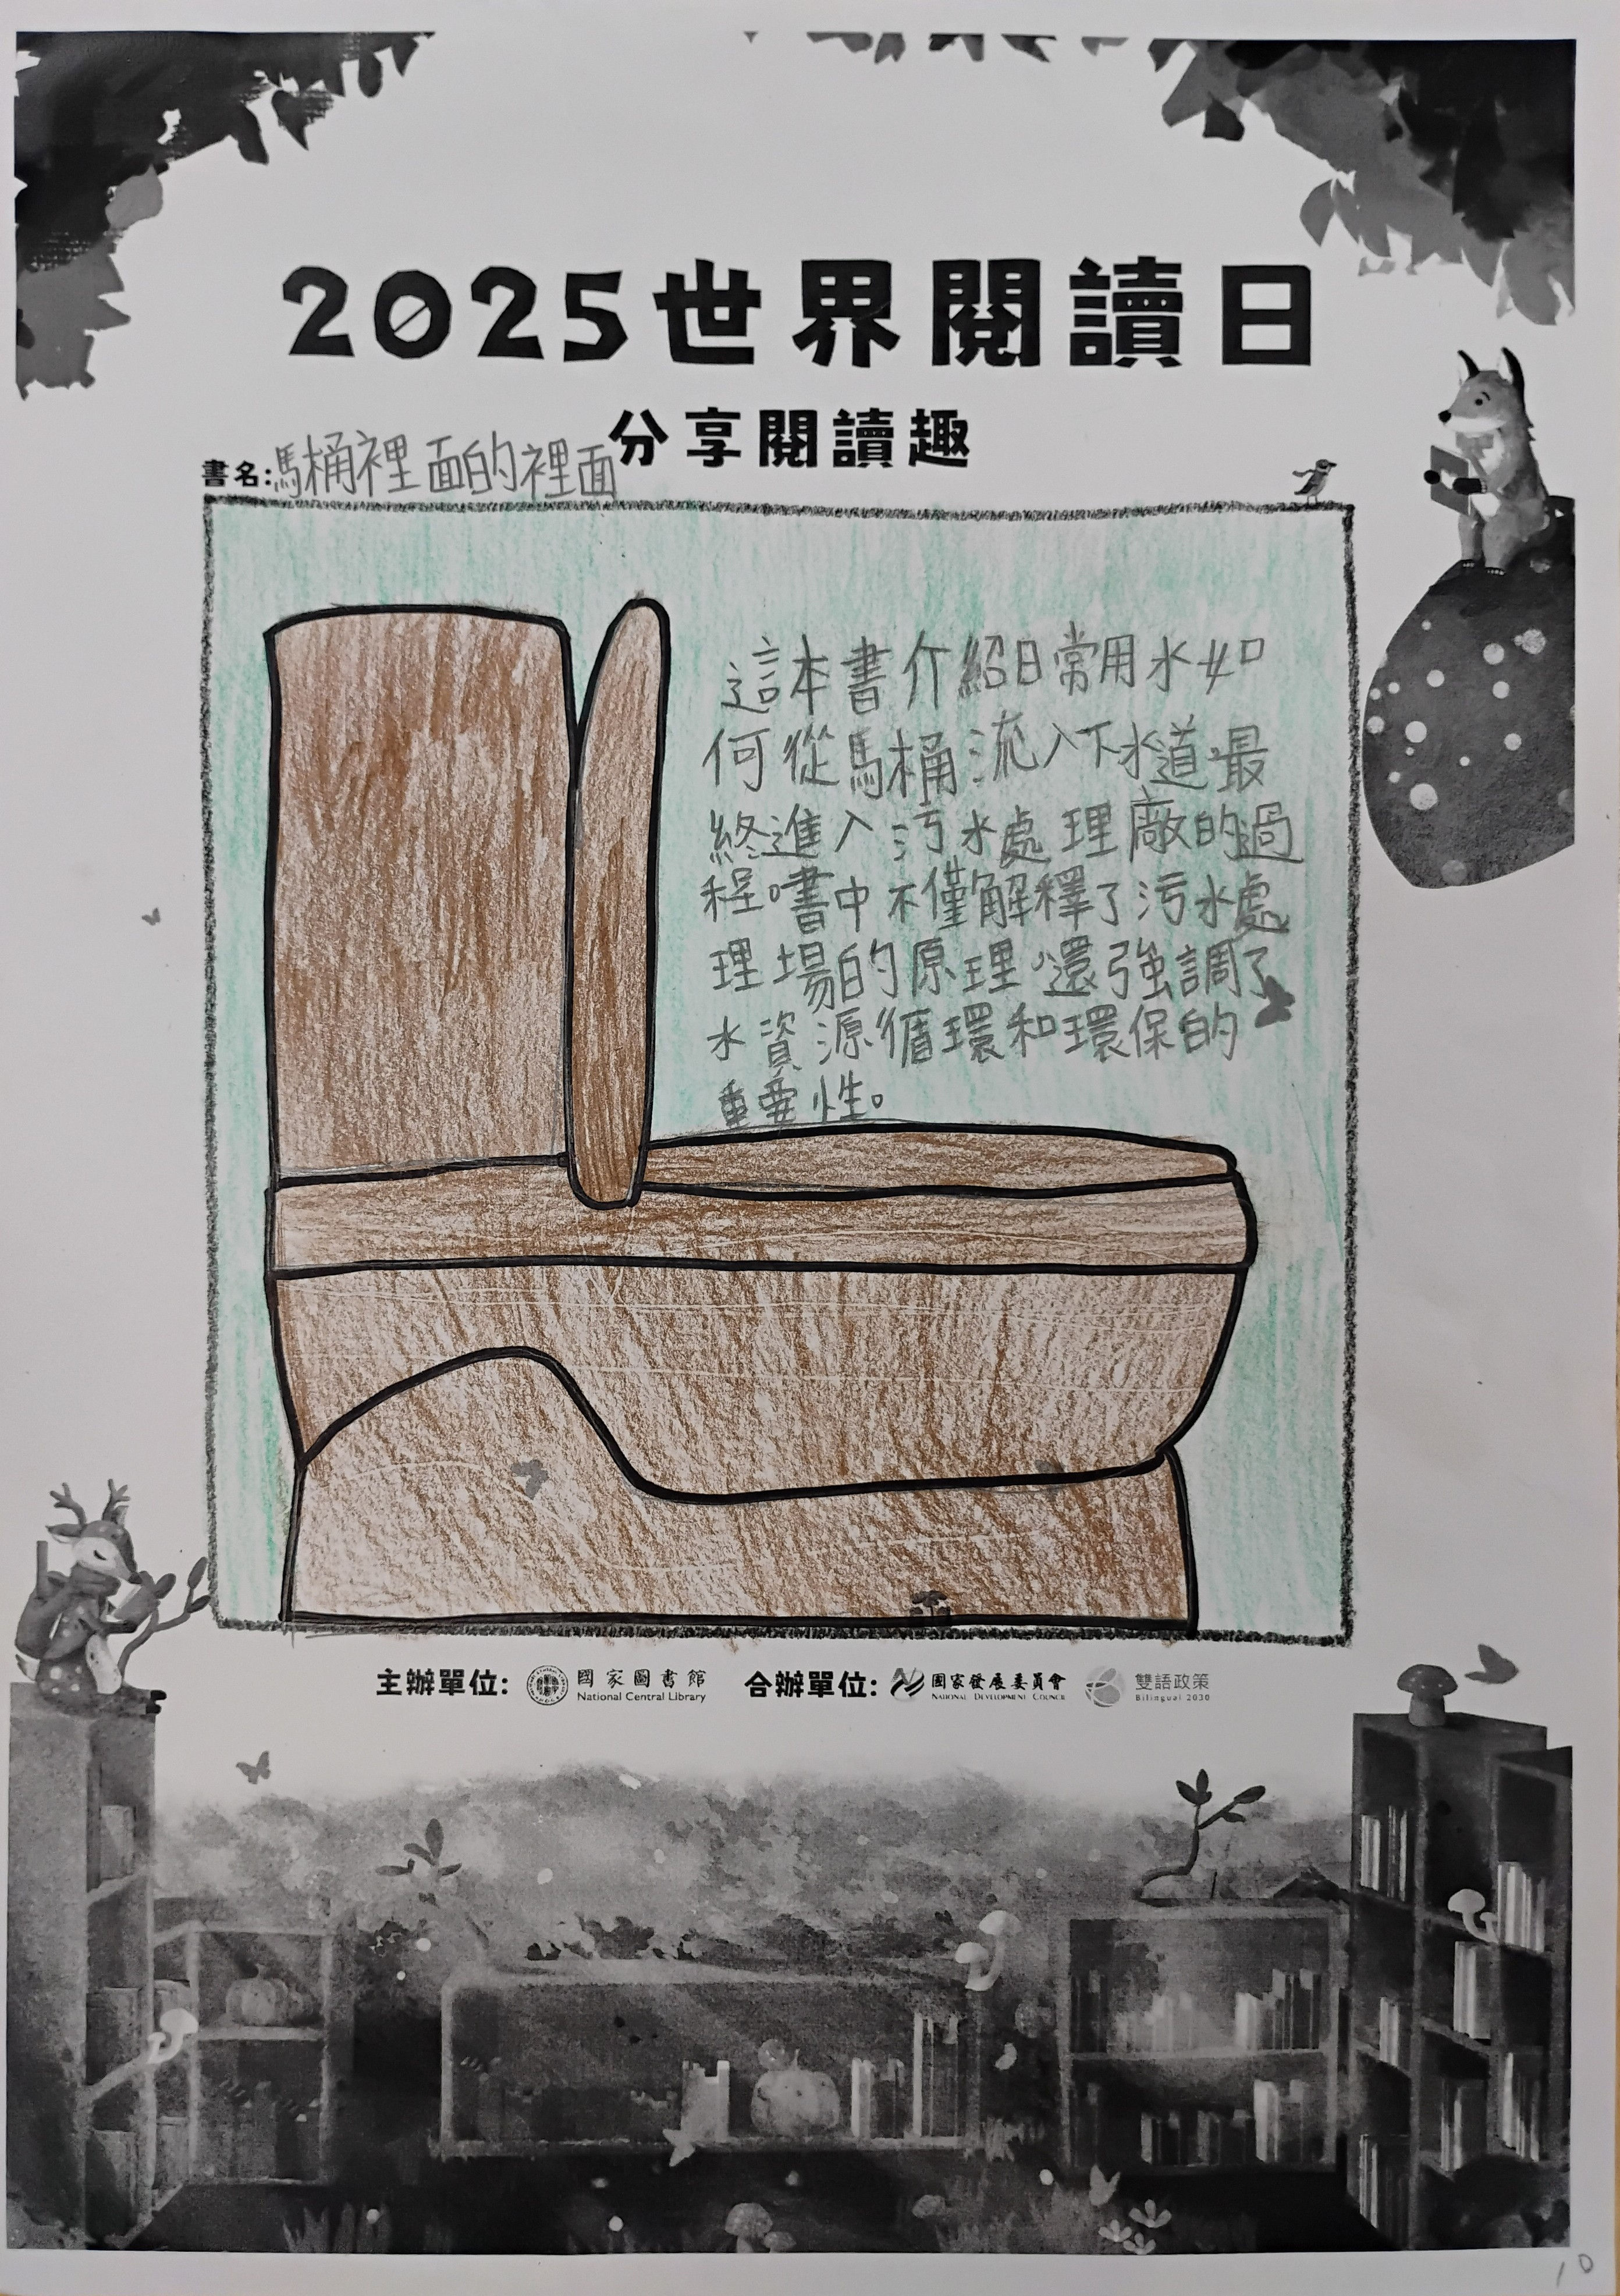 2025世界閱讀日
分享閱讀趣
書名:馬桶裡面的裡面
這本書介紹日常用水如
何從馬桶流入下水道最
終進入污水處理廠的過
程。書中不僅解釋了污水處
理場的原理。還強調了
水資源循環和環保的
重要性。
主辦單位: 國家圖書館 National Central Library 合辦單位: 國家發展委員會 NATIONAL DEVELOPMENT COUNCIL 雙語政策 Bilingual 2030
10